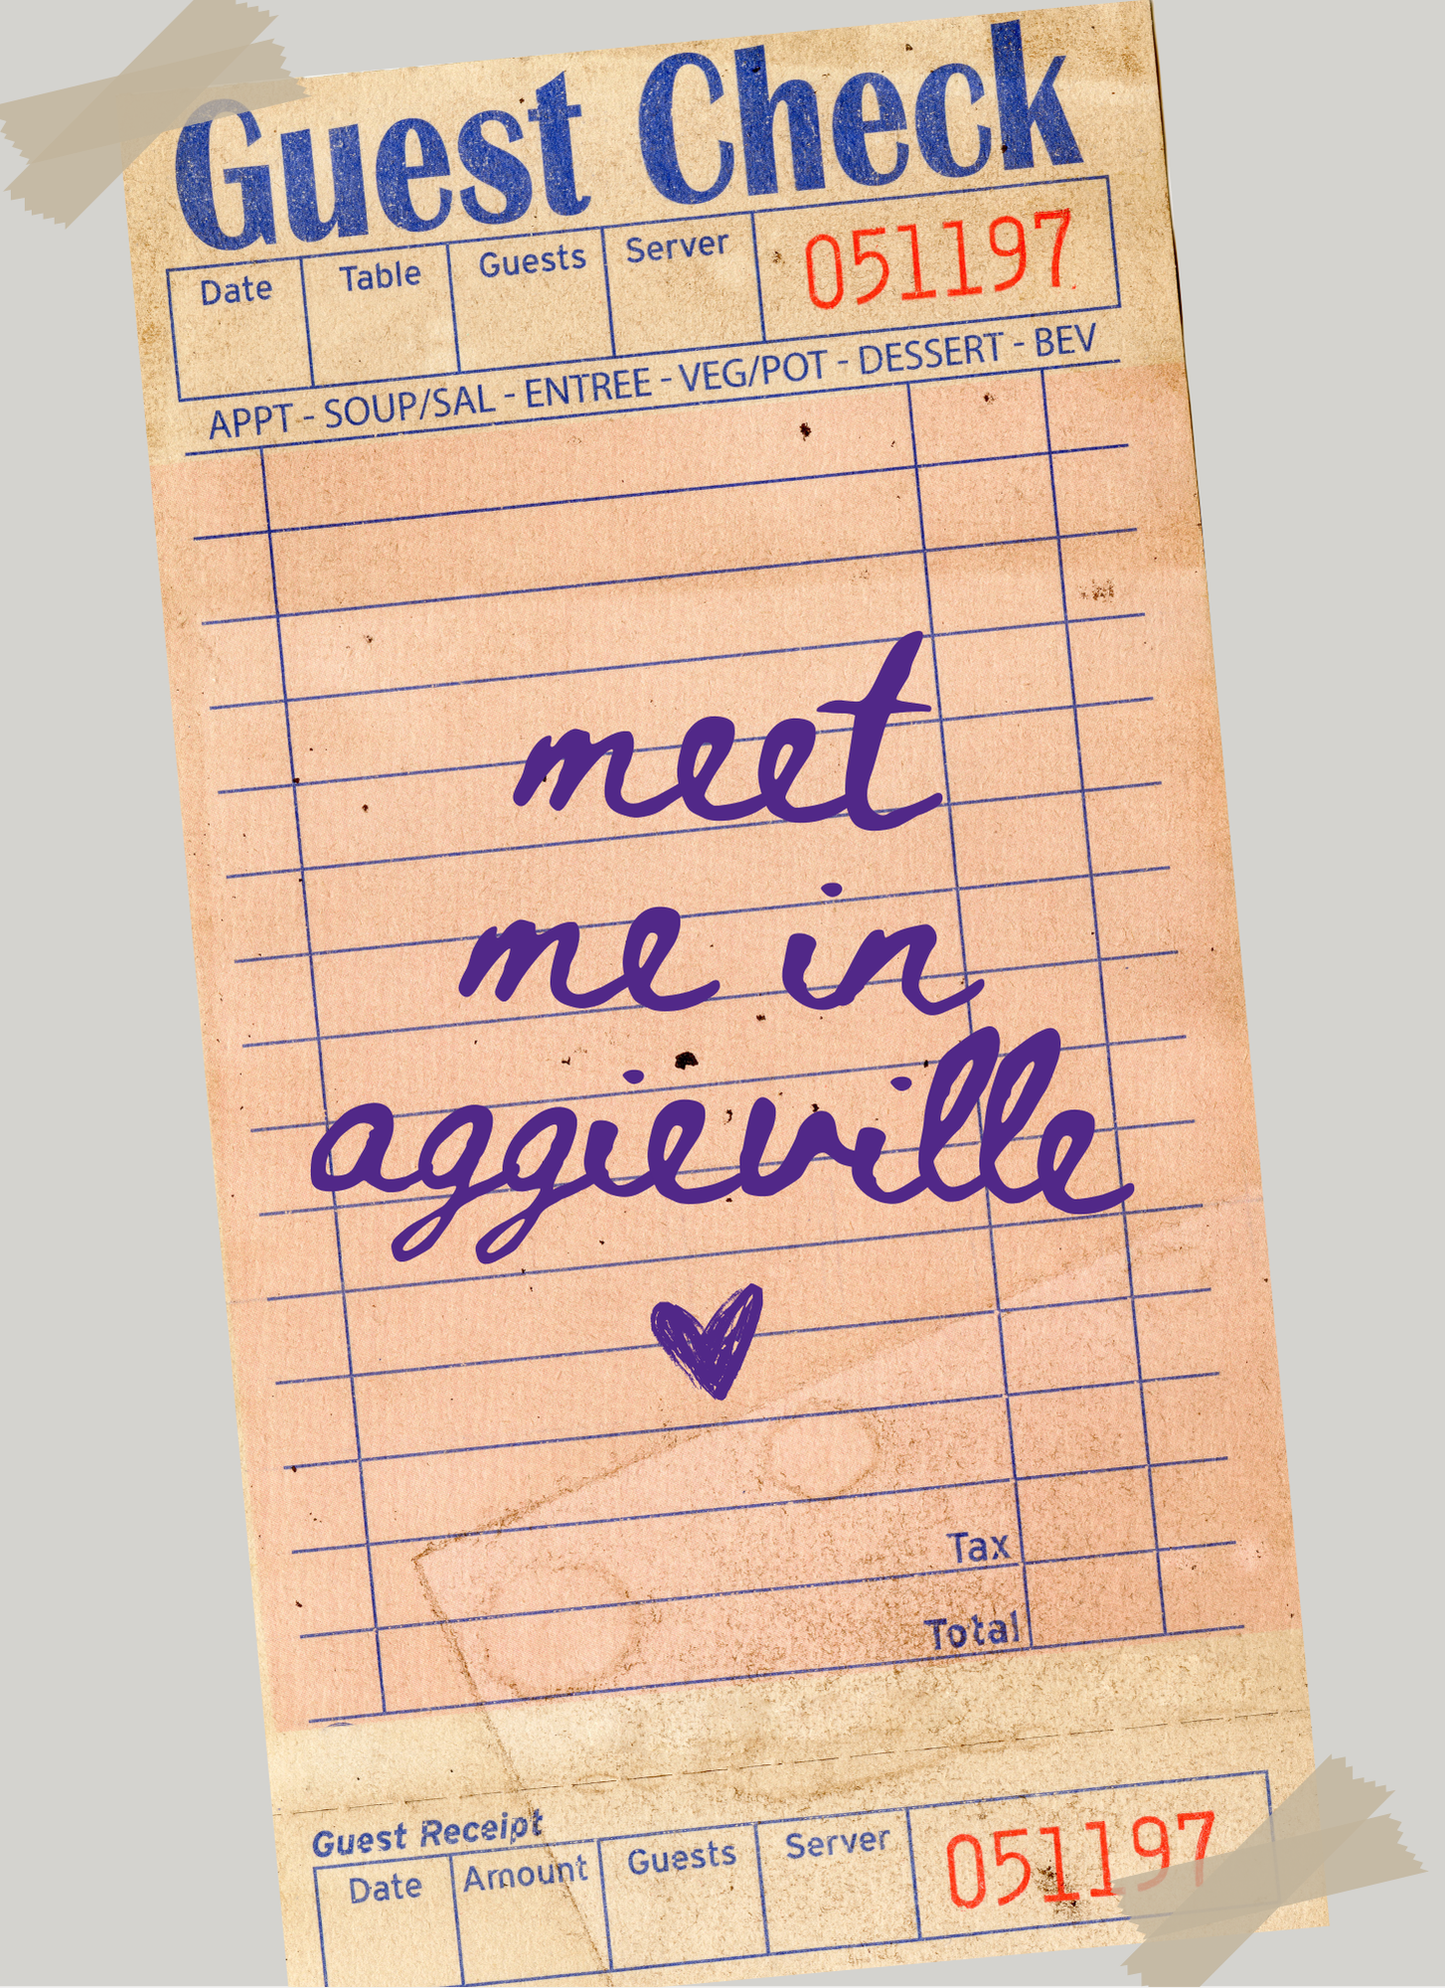 Guest Check
Date Table Guests Server 051197
APPT - SOUP/SAL - ENTREE - VEG/POT - DESSERT - BEV
meet
me in
aggieville
Tax
Total
Guest Receipt
Date Amount Guests Server 051197